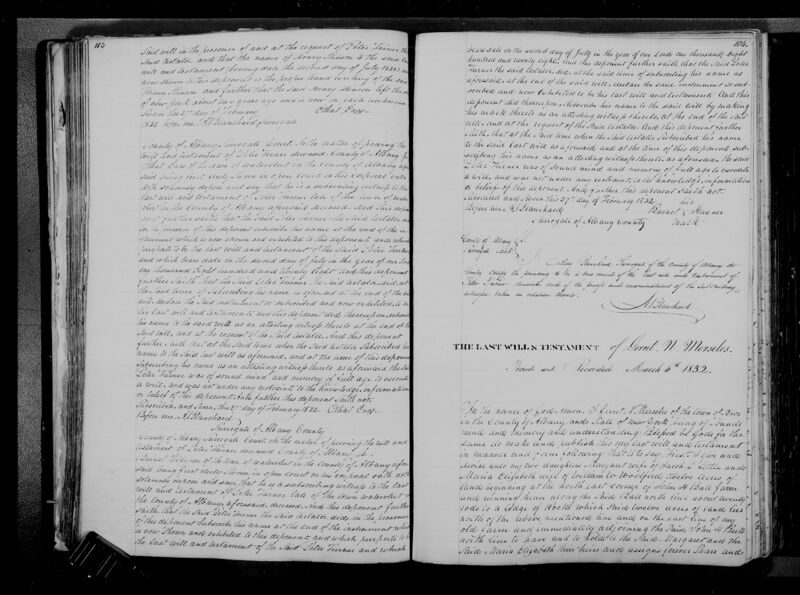 103
Said will in the presence of and at the request of Peter Turner the
Said testator and that the name of Henry Stinson to the said last
will and testament bearing date the second day of July 1828
now shewn to this deponent is the proper hand writing of the said
Henry Stinson and further that the said Henry Stinson left the State
of new york about two years ago and is now in
Sworn this 27th day of February
1832 before me A Blanchard Surrogate
County of Albany Surrogate Court In the matter of proving the
will and testament of Peter Turner deceased County of Albany
of the town of watervliet in the County of Albany
said being first duly Sworn in open Court on his corporal oath
doth solemnly depose and say that he is a subscribing witness to the
last will and testament of Peter Turner late of the town of
in the County of Albany aforesaid deceased And this deponent
further saith that the Said Peter Turner the Said testator
in the presence of this deponent subscribe his name at the end of the
instrument which is now shewn and exhibited to this deponent and which
purports to be the last will and testament of the Said Peter Turner
and which bears date on the second day of July in the year of our Lord
one thousand Eight hundred and twenty Eight And this deponent
further Saith that the Said Peter Turner the Said testator did at
the Said time of subscribing his name as aforesaid at the end of the
will declare the Said instrument so subscribed and now exhibited to be
his last will and testament and this deponent did thereupon subscribe
his name to the said will as an attesting witness thereto at the end of the
Said will, and at the request of the Said testator. And this deponent
further Saith that at the Said time when the Said testator Subscribed his
name to the Said last will as aforesaid, and at the time of this deponent
Subscribing his name as an attesting witness thereto as aforesaid the Said
Peter Turner was of sound mind and memory of full age to execute
a will, and was not under any restraint, to the knowledge, information
or belief of this deponent. And further this deponent Saith not
Subscribed, and Sworn, this 27th day of February 1832
Before me A Blanchard
Surrogate of Albany County
County of Albany Surrogate Court In the matter of proving the last will and
testament of Peter Turner deceased County of Albany Ss
Barent Hayner of the town of watervliet in the County of Albany
said being first duly Sworn in open Court on his corporal oath doth
solemnly depose and say, that he is a subscribing witness to the last
will and testament of Peter Turner late of the town watervliet in
the County of Albany aforesaid, deceased. And this deponent further
saith that the Said Peter Turner the Said testator did, in the presence
of this deponent Subscribe his name at the end of the instrument which
is now Shewn and exhibited to this deponent and which purports to be
the last will and testament of the Said Peter Turner and which
104.
bears date on the second day of July in the year of our Lord one thousand Eight
hundred and twenty eight. And this deponent further saith, that the Said Peter
Turner the said testator did, at the said time of subscribing his name as
aforesaid, at the end of the said will, declare the said instrument so sub-
scribed and now exhibited to be his last will and testament. And this
deponent did thereupon Subscribe his name to the said will by making
his mark thereto as an attesting witness thereto, at the end of the said
will, and at the request of the said testator. And this deponent further
Saith, that at the Said time when the Said testator Subscribed his name
to the Said last will as aforesaid, and at the time of this deponent sub-
scribing his name as an attesting witness thereto, as aforesaid, the Said
Peter Turner was of sound mind and memory of full age to execute
a will, and was not under any restraint, to the knowledge, information
or belief of this deponent. And further this deponent Saith not
and Sworn this 27th day of February 1832 his
Before me A Blanchard Barent X Hayner
Surrogate of Albany County mark
County of Albany
Surrogate Court
I Blanchard Surrogate of the County of Albany do
hereby certify the foregoing to be a true record of the last will and testament of
Peter Turner deceased, and of the proofs and examinations of the Subscribing
witnesses taken in relation thereto.
A Blanchard
THE LAST WILL & TESTAMENT of Gerrit N. Merseles.
Proved and Recorded March 6th 1832.
In the name of God, Amen. I Gerrit N Merseles of the town of
in the County of Albany, and State of new York being of Sound
mind and memory and understanding Blessed be God for the
same do make and publish this my last will and testament
in manner and form following that is to say First. I Give and
devise unto my two daughters Margaret wife of Jacob and
Maria Elizabeth wife of twelve acres of
land beginning at the north East corner of farm
and running hence along the Said line north about twenty
rods to a ledge of Rocks which Said twelve acres of land lies
north of the river and on the East line of my
old farm and immediately adjoining the Said
north line to have and to hold to the Said Margaret and the
Said Maria Elizabeth their heirs and assigns forever Share and